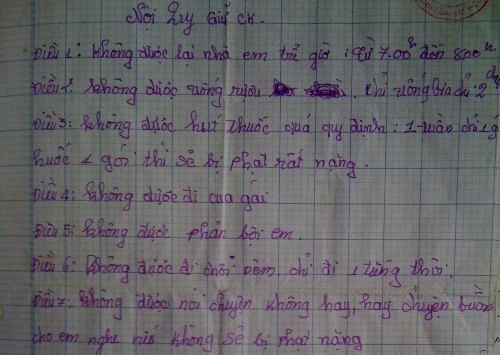 Nội Quy Giữ CK.
Điều 1: không được lại nhà em trể giờ: Từ 7.00h đến 800h
Điều 2: không được uống rượu . chỉ uống bia chỉ: 2
Điều 3: không được hút thuốc quá quy định: 1 tuần chỉ 1 gói
thuốc 4 gói thì sẽ bị phạt rất nặng.
Điều 4: không được đi cua gái
Điều 5: không được phản bội em.
Điều 6: không được đi chơi đêm chỉ đi 1 tiếng thôi.
Điều 7: không được nói chuyện không hay, hay chuyện buồn
cho em nghe nếu không sẽ bị phạt nặng